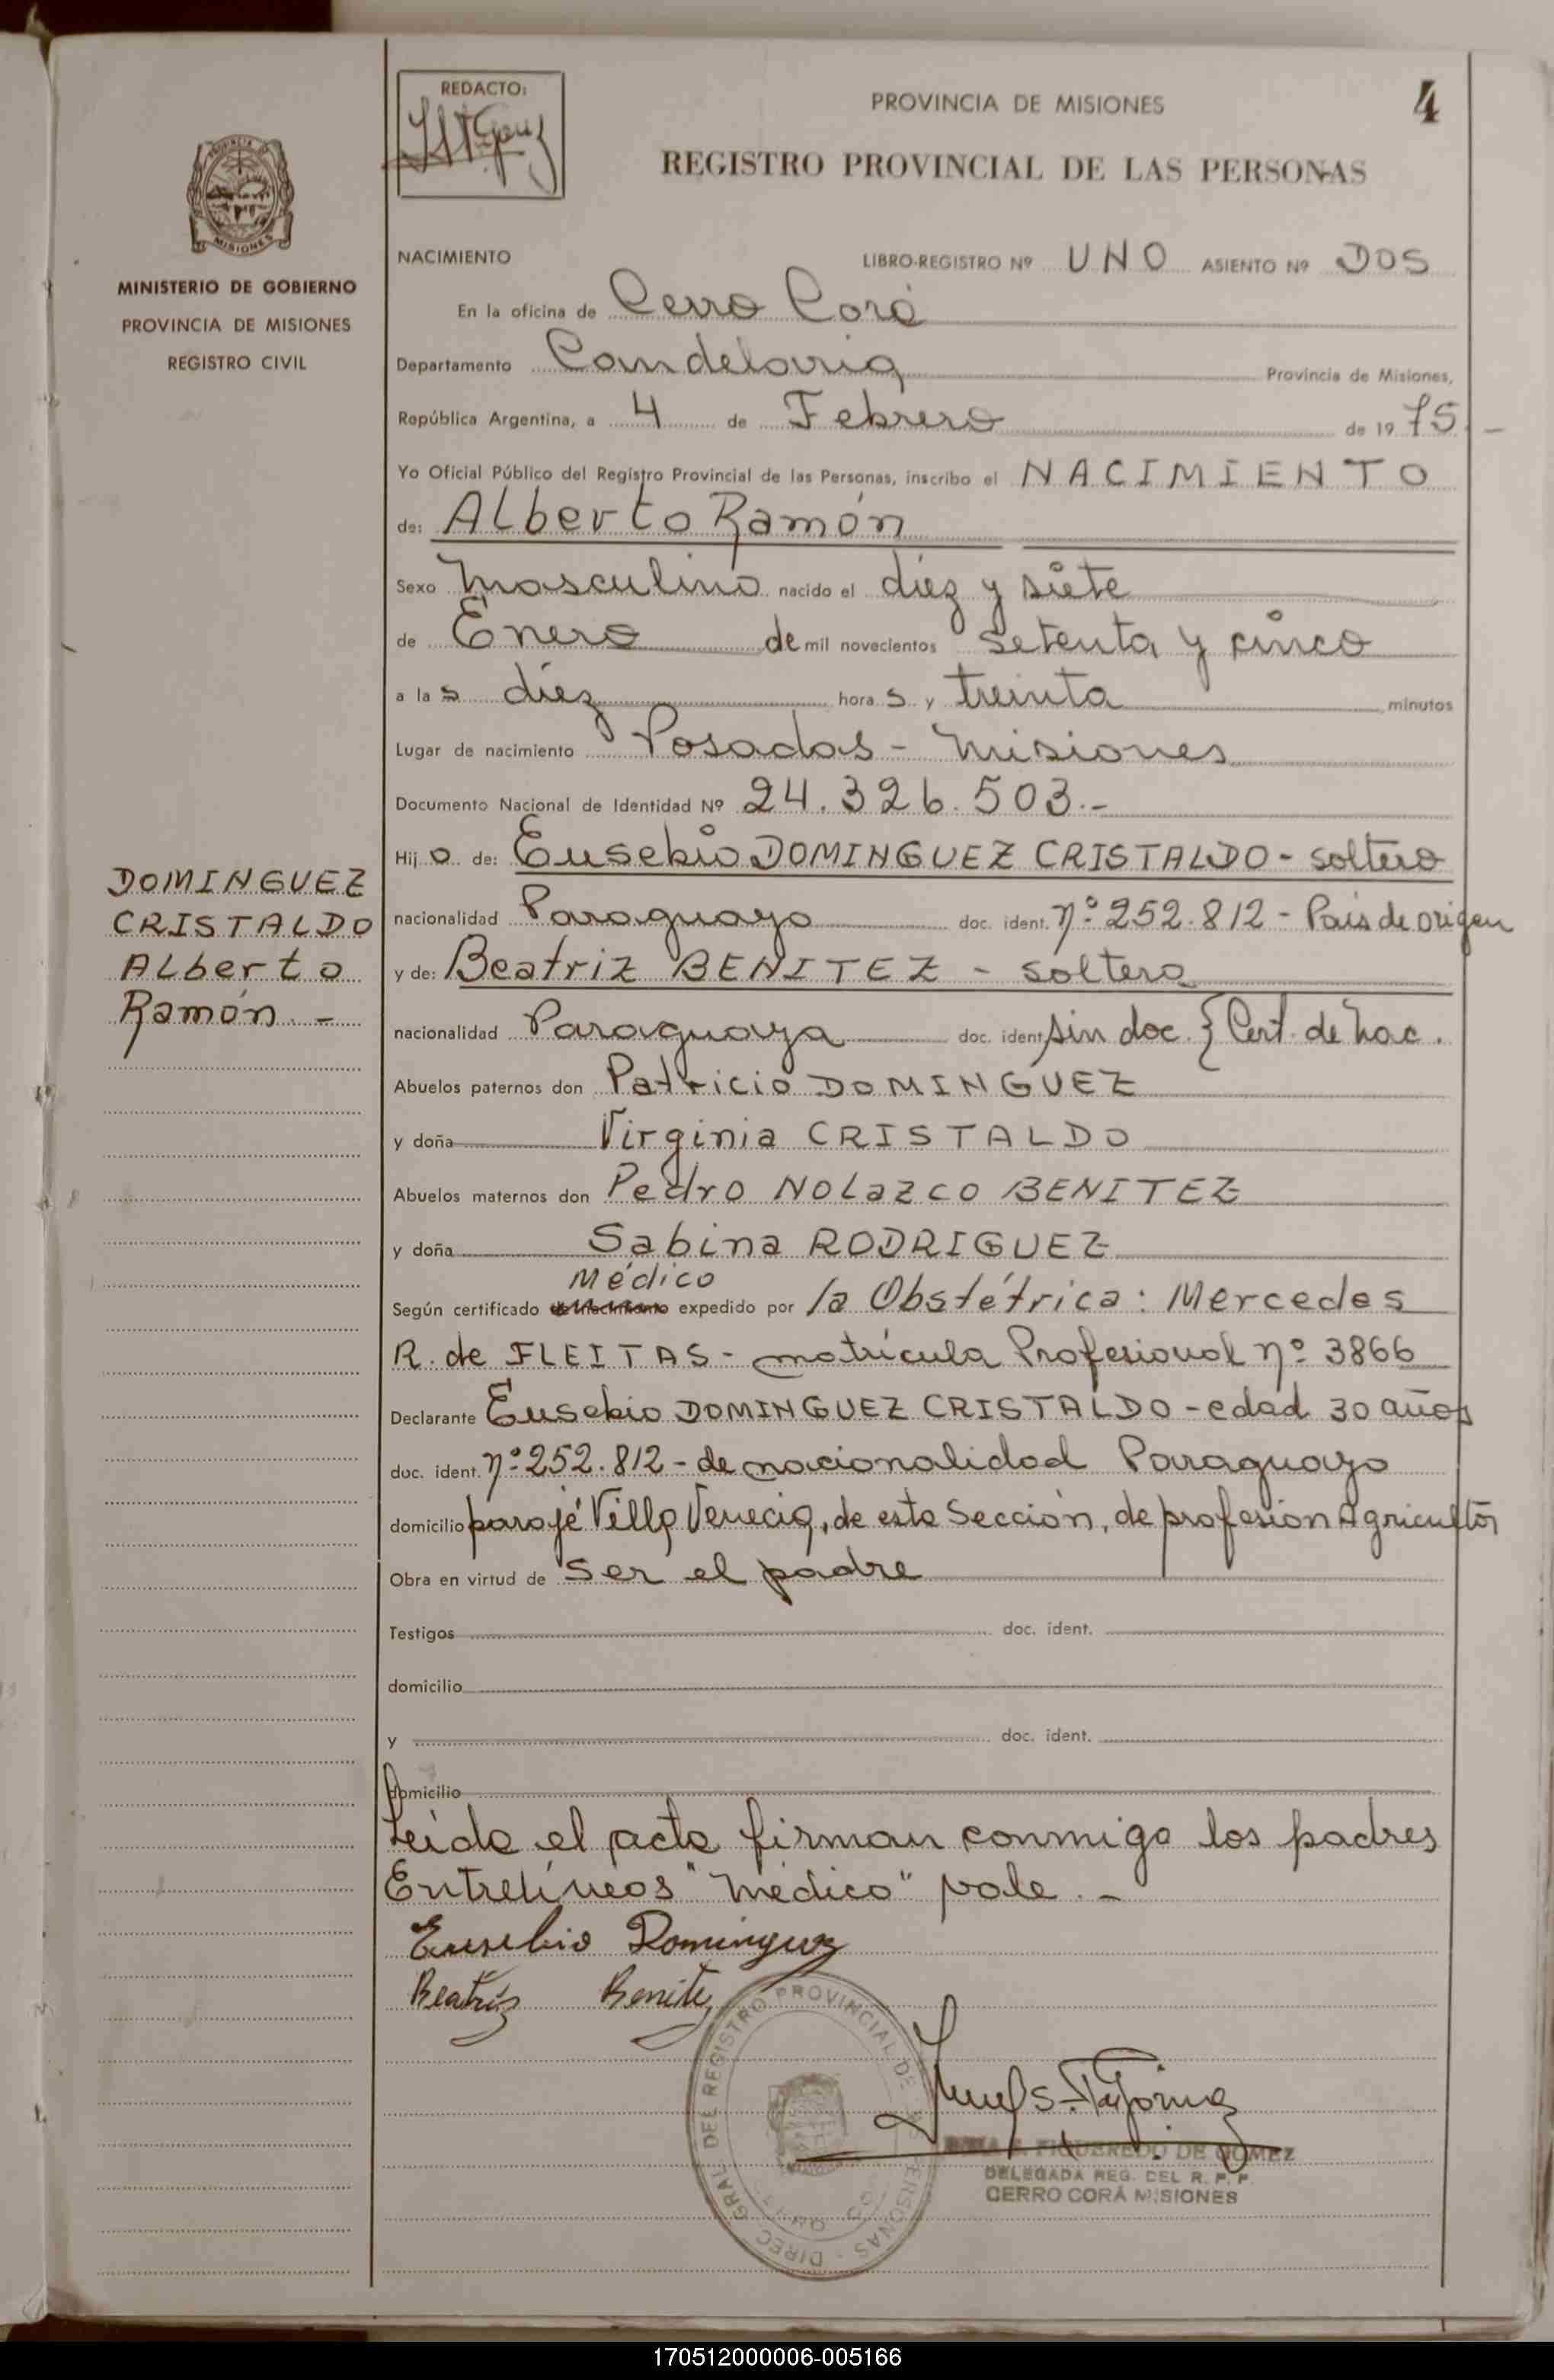 REDACTO:
PROVINCIA DE MISIONES
4
REGISTRO PROVINCIAL DE LAS PERSONAS
PROVINCIA DE
MISIONES
MINISTERIO DE GOBIERNO
PROVINCIA DE MISIONES
REGISTRO CIVIL
NACIMIENTO LIBRO-REGISTRO Nº UNO ASIENTO Nº DOS
En la oficina de Cerro Corá
Departamento Candelaria Provincia de Misiones,
República Argentina, a 4 de Febrero de 1975.-
Yo Oficial Público del Registro Provincial de las Personas, inscribo el NACIMIENTO
de: Alberto Ramón
Sexo Masculino nacido el diez y siete
de Enero de mil novecientos setenta y cinco
a las diez horas y treinta minutos
Lugar de nacimiento Posadas - Misiones
Documento Nacional de Identidad Nº 24.326.503.-
Hijo de: Eusebio DOMINGUEZ CRISTALDO - soltero
nacionalidad Paraguayo doc. ident. nº 252.812 - País de origen
y de: Beatriz BENITEZ - soltera
nacionalidad Paraguaya doc. ident. sin doc. { Cert. de nac.
DOMINGUEZ
CRISTALDO
Alberto
Ramón.-
Abuelos paternos don Patricio DOMINGUEZ
y doña Virginia CRISTALDO
Abuelos maternos don Pedro NOLazco BENITEZ
y doña Sabina RODRIGUEZ
Médico
Según certificado expedido por la Obstétrica: Mercedes
R. de FLEITAS - matrícula Profesional nº 3866
Declarante Eusebio DOMINGUEZ CRISTALDO - edad 30 años
doc. ident. nº 252.812 - de nacionalidad Paraguayo
domicilio paraje Villa Venecia, de esta Sección, de profesión Agricultor
Obra en virtud de ser el padre
Testigos doc. ident.
domicilio
y doc. ident.
domicilio
Leída el acta firman conmigo los padres
Entrelíneas "Médico" vale.-
Eusebio Dominguez
Beatriz Benitez
DIREC. GRAL. DEL REGISTRO PROVINCIAL DE LAS PERSONAS
FIGUEREDO DE GOMEZ
DELEGADA REG. DEL R. P. P.
CERRO CORÁ MISIONES
170512000006-005166